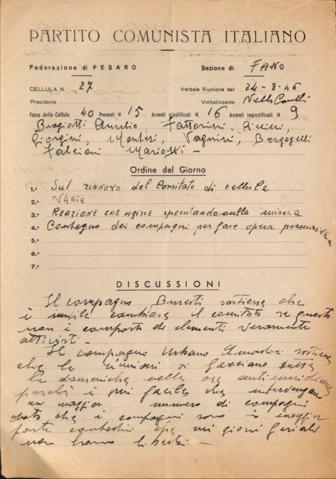 PARTITO COMUNISTA ITALIANO
Federazione di PESARO
Sezione di FANO
CELLULA N. 27
Verbale Riunione del 24-3-46
Presidente
Verbalizzante
Forza della Cellula 40 Presenti N. 15 Assenti Giustificati N. 16 Assenti ingiustificati N. 9
Aurelio
Ordine del Giorno
1.° Sul rinnovo del Comitato di cellula
2.° VARIE
3.° REAZIONE CHE AGISCE speculando sulla miseria
4.° Contegno dei compagni per fare opera
5.°
6.°
7.°
DISCUSSIONI
Il compagno sostiene che
è inutile cambiare il comitato se questo
non è composto di elementi veramente
attivisti.-
Il compagno Urbano Amadori sostiene
che le riunioni si facciano
la domenica nelle ore antimeridiane
perché è più facile che intervengano
un maggior numero di compagni
dato che i compagni sono in maggior
parte che nei giorni feriali
non hanno libertà.-